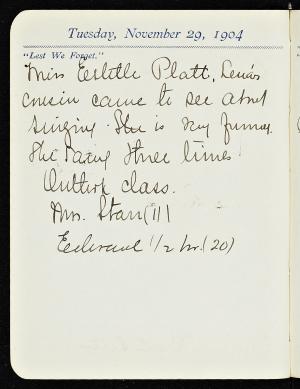 Tuesday, November 29, 1904
"Lest We Forget."
Miss Platt, Lena's
cousin came to see about
singing. She is very funny.
She three times
class.
Mrs. Starr (11)
Edward 1/2 hr. (20)